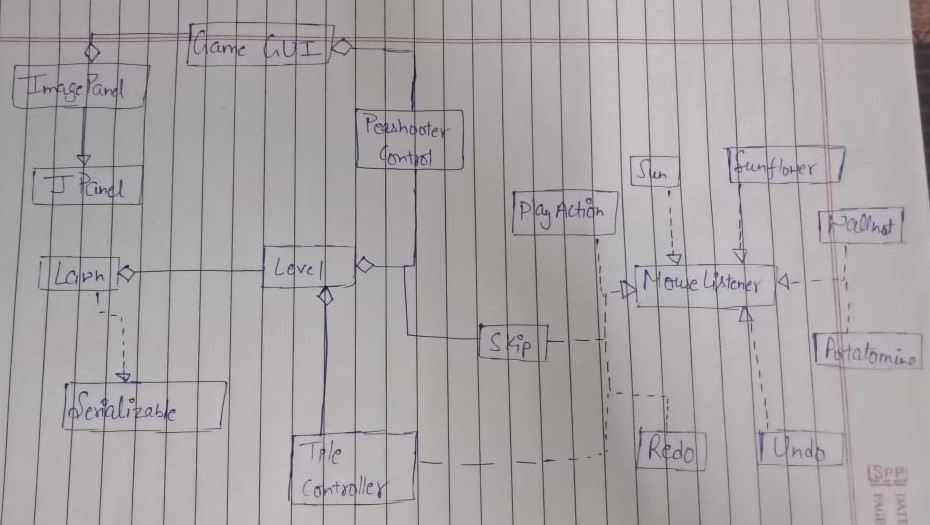 Game GUI
ImagePanel
Peashooter
Control
J Panel
Sun
Sunflower
PlayAction
Wallnot
Lawn
Level
MouseListener
Skip
Potatomine
Serializable
Tile
Controller
Redo
Undo
SPP
DATE
PAGE